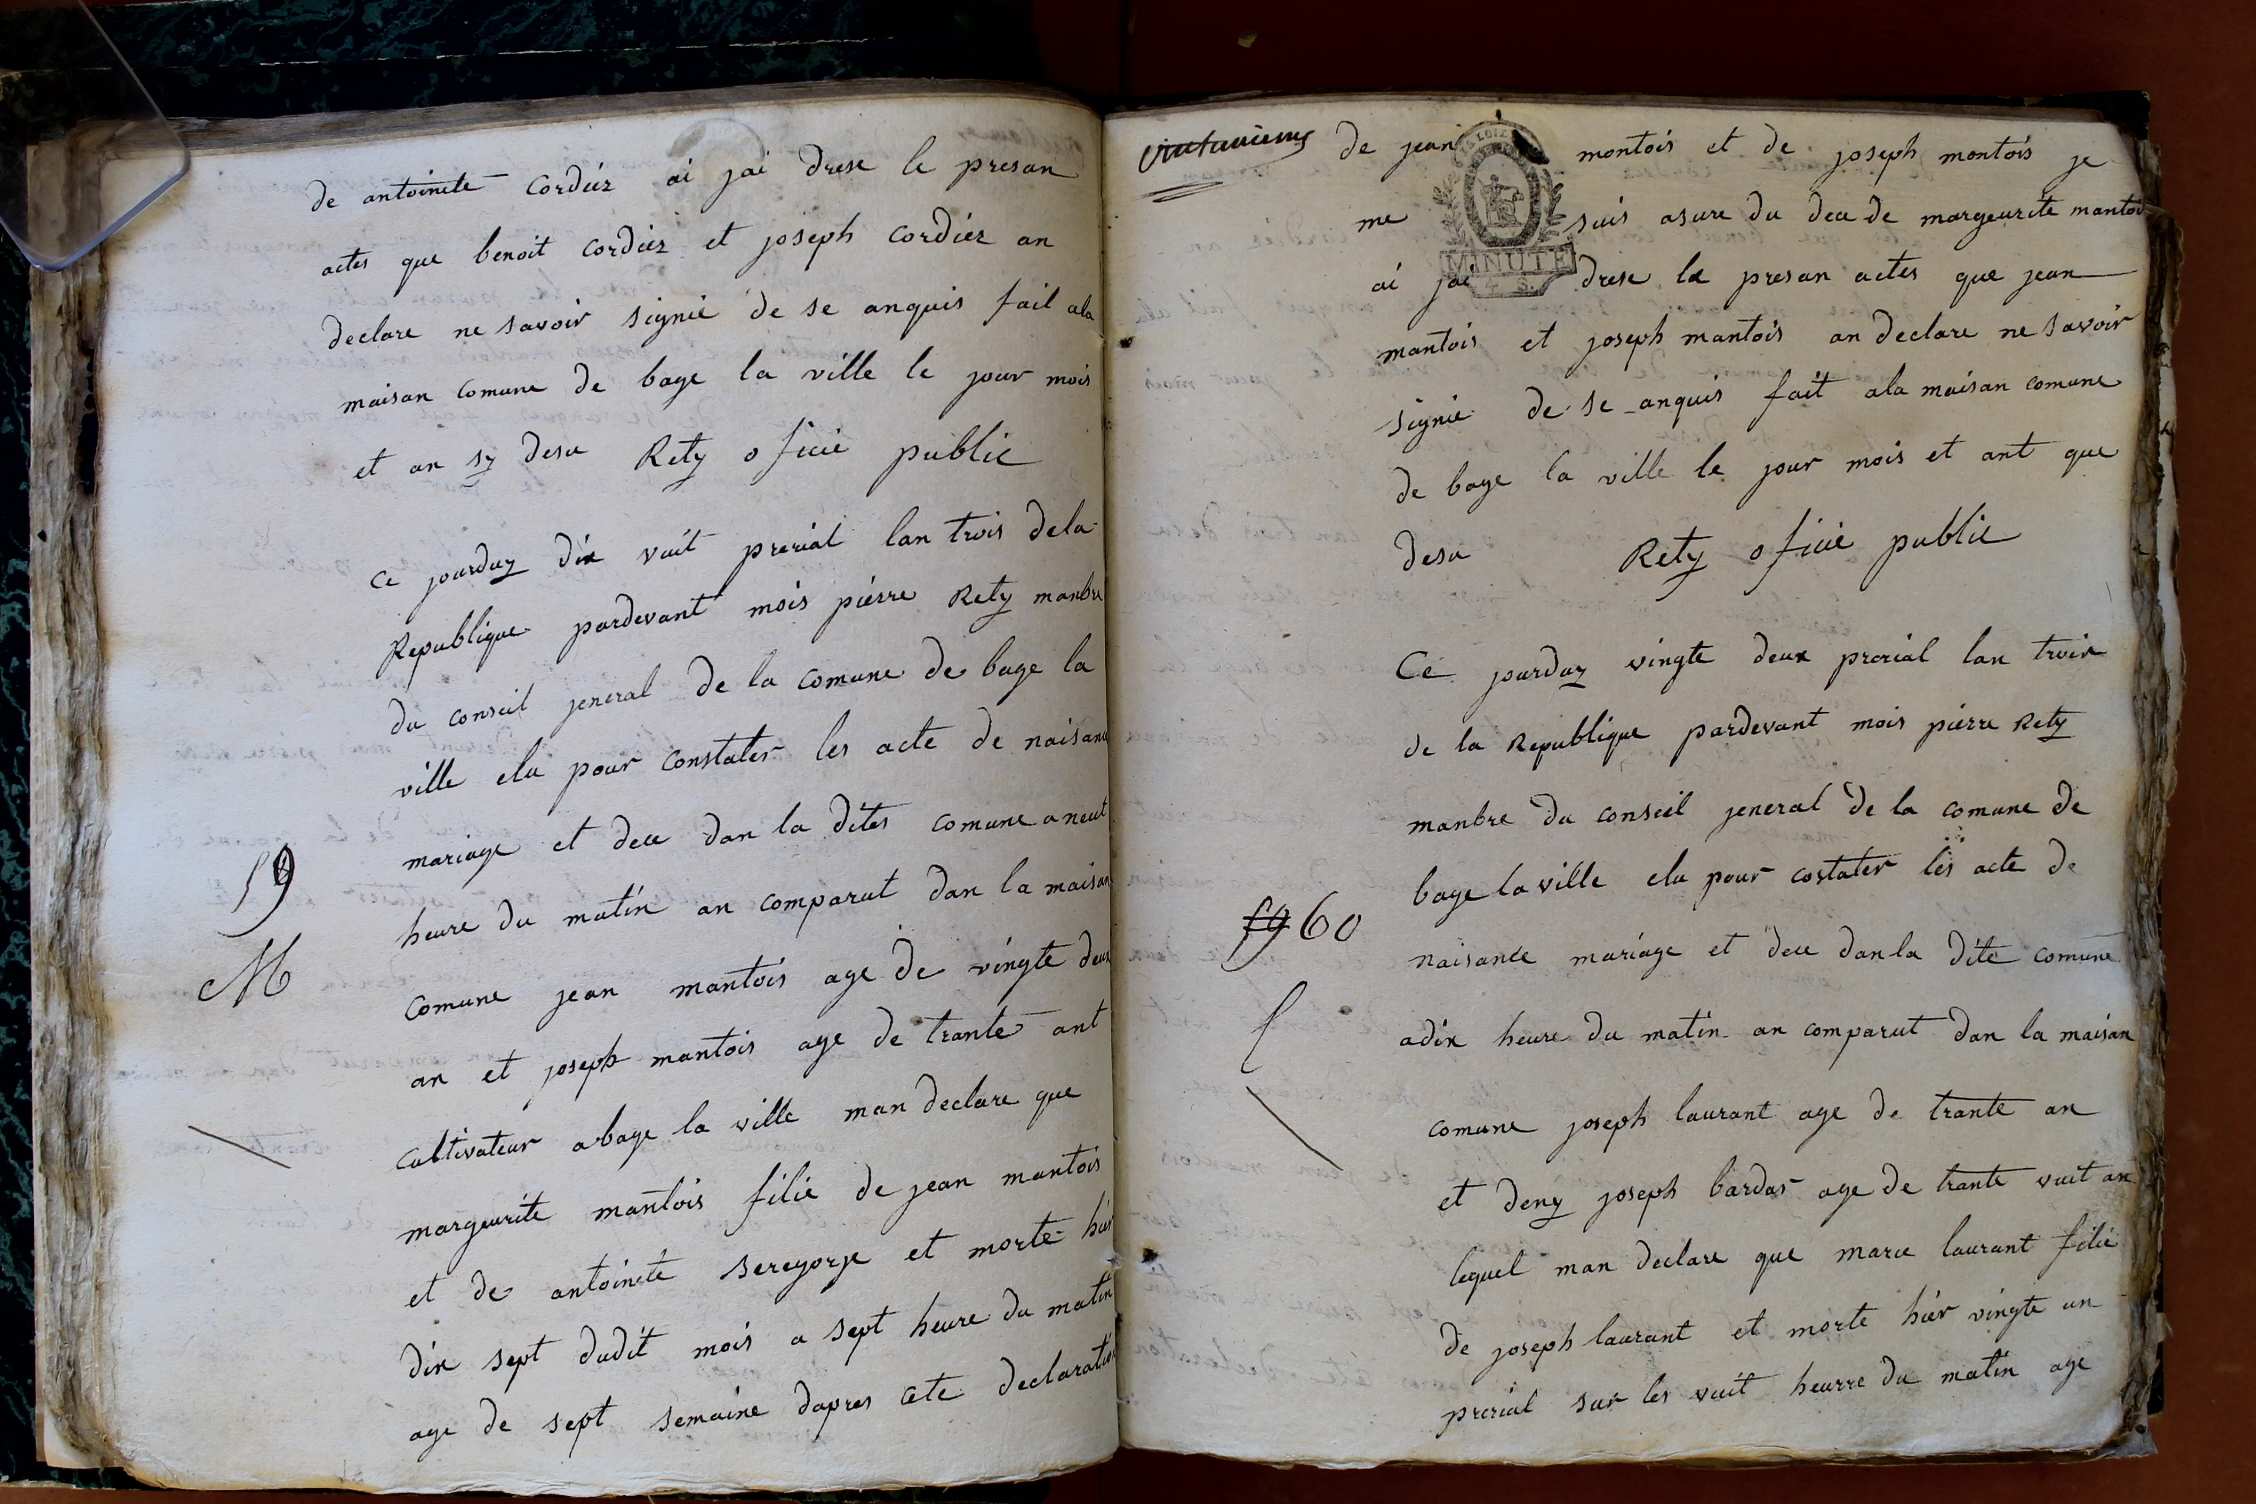 de antoinete cordier ai jai drese le presan
actes que benoit cordier et joseph cordier an
declare ne savoir signié de se anquis fait ala
maison comune de bage la ville le jour mois
et an sy desu Rety oficié public
ce jourduy dix vuit prerial lan trois dela
Republique pardevant mois piérre Rety manbre
du conseil jeneral de la comune de bage la
ville elu pour constater les acte de naisance
mariage et dece dan la dites comune a neut
59
heure du matin an comparut dan la maison
M
comune jean mantois age de vingte deux
an et joseph mantois age de trante ant
cultivateur abage la ville man declare que
margeurite mantois filié de jean mantois
et de antoinete seregorje et morte hier
dix sept dudit mois a sept heure du matin
age de sept semaine dapres cete declaration
de jean montois et de joseph montois je
me suis asure du dece de margeurite mantois
MINUTE
ai jai drese le presan actes que jean
mantois et joseph mantois an declare ne savoir
signié de se anquis fait ala maisan comune
de bage la ville le jour mois et ant que
desu Rety oficié public
Ce jourduy vingte deux prerial lan troix
de la Republique pardevant mois piérre Rety
manbre du conseil jeneral de la comune de
bage la ville elu pour costater les acte de
59 60
naisance mariage et dece dan la dite comune
adix heure du matin an comparut dan la maisan
L
comune joseph laurant age de trante an
et deny joseph bardas age de trante vuit an
lequel man declare que marie laurant filié
de joseph laurant et morte hiér vingte un
prerial sur les vuit heurre du matin age